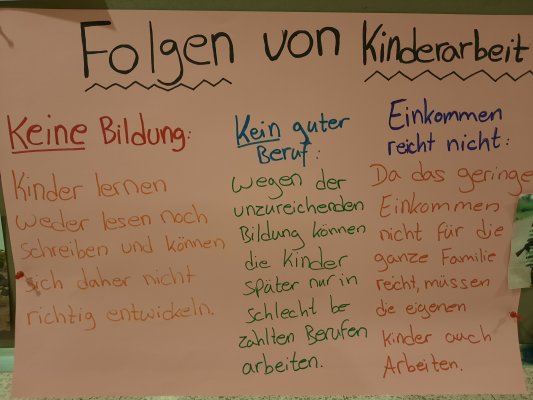 Folgen von Kinderarbeit
Keine Bildung:
Kinder lernen
weder lesen noch
schreiben und können
sich daher nicht
richtig entwickeln.
Kein guter
Beruf:
Wegen der
unzureichenden
Bildung können
die Kinder
später nur in
schlecht be
zahlten Berufen
arbeiten.
Einkommen
reicht nicht:
Da das geringe
Einkommen
nicht für die
ganze Familie
reicht, müssen
die eigenen
kinder auch
Arbeiten.